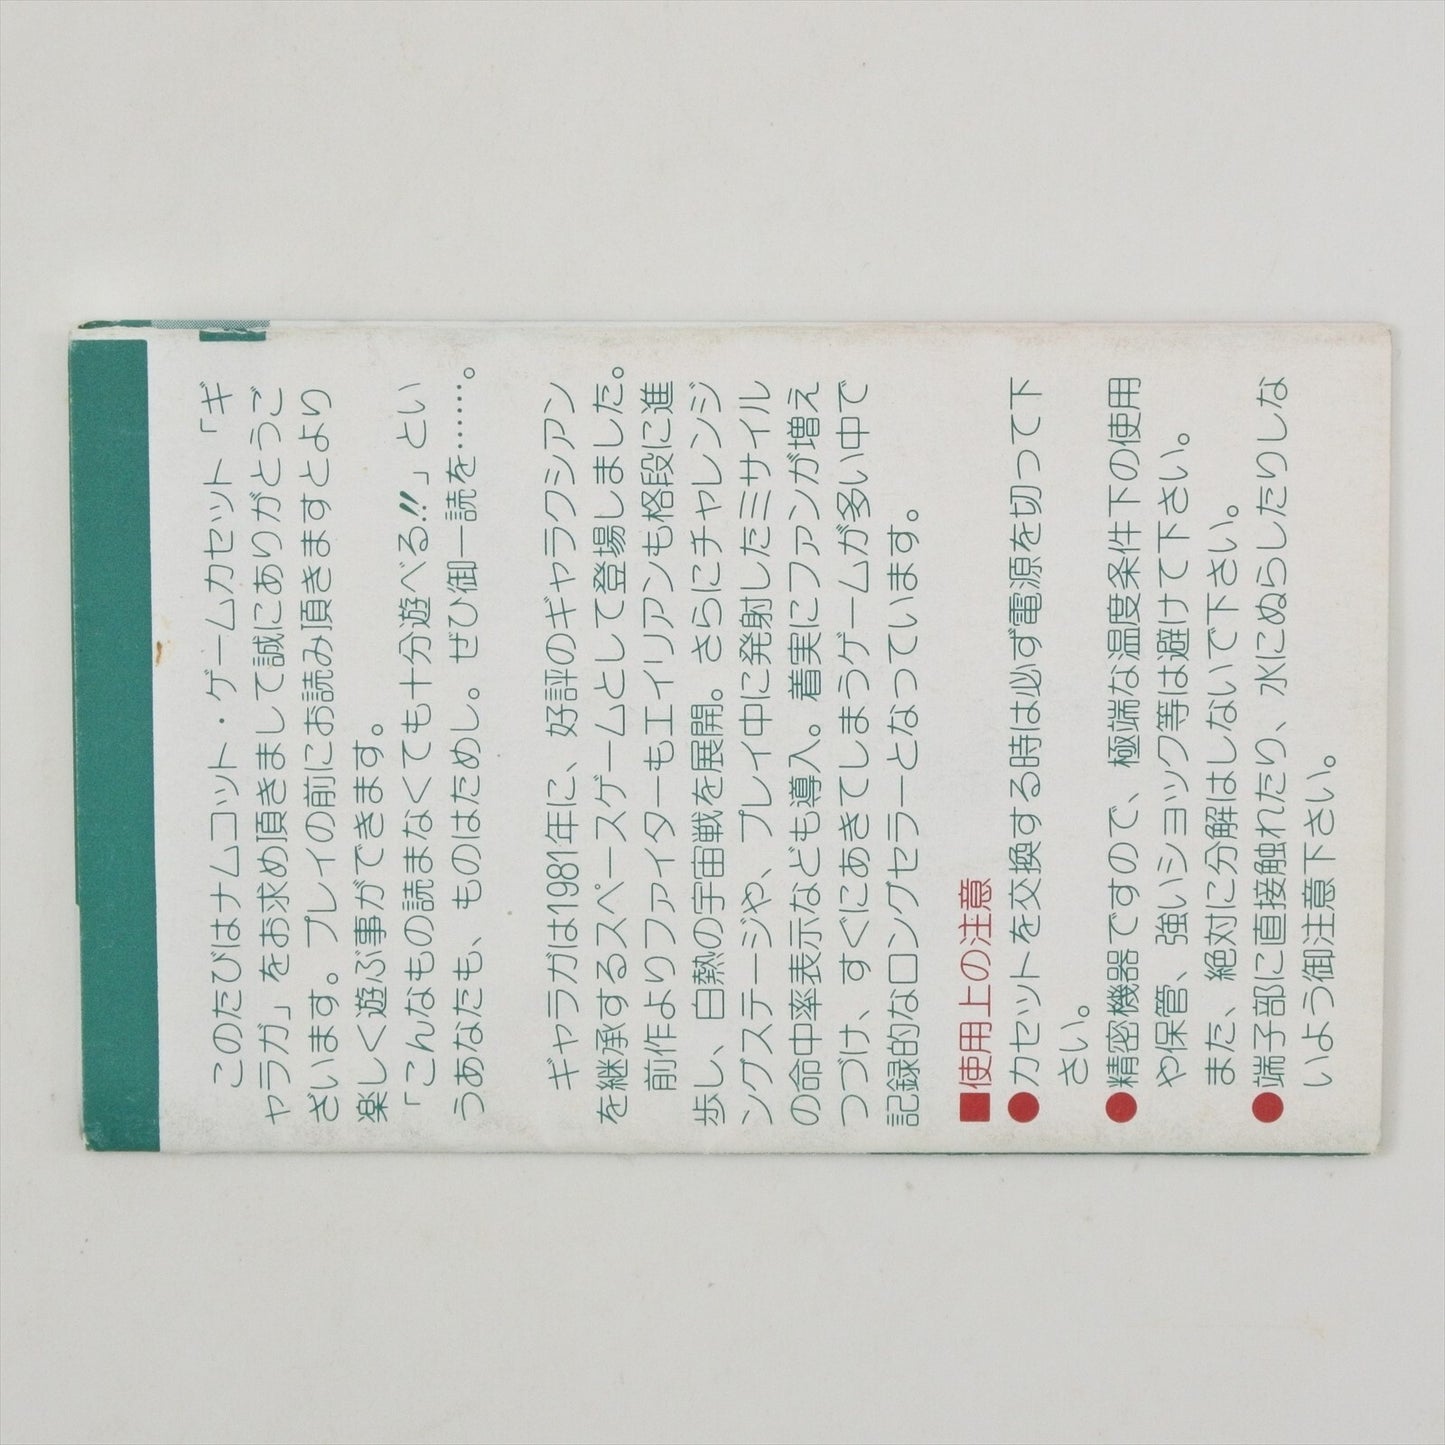 このたびはナムコット・ゲームカセット「ギ
ャラガ」をお求め頂きまして誠にありがとうご
ざいます。プレイの前にお読み頂きますとより
楽しく遊ぶ事ができます。
「こんなもの読まなくても十分遊べる!!」とい
うあなたも、ものはためし。ぜひ御一読を……。
ギャラガは1981年に、好評のギャラクシアン
を継承するスペースゲームとして登場しました。
前作よりファイターもエイリアンも格段に進
歩し、白熱の宇宙戦を展開。さらにチャレンジ
ングステージや、プレイ中に発射したミサイル
の命中率表示なども導入。着実にファンが増え
つづけ、すぐにあきてしまうゲームが多い中で
記録的なロングセラーとなっています。
■使用上の注意
●カセットを交換する時は必ず電源を切って下
さい。
●精密機器ですので、極端な温度条件下の使用
や保管、強いショック等は避けて下さい。
また、絶対に分解はしないで下さい。
●端子部に直接触れたり、水にぬらしたりしな
いよう御注意下さい。